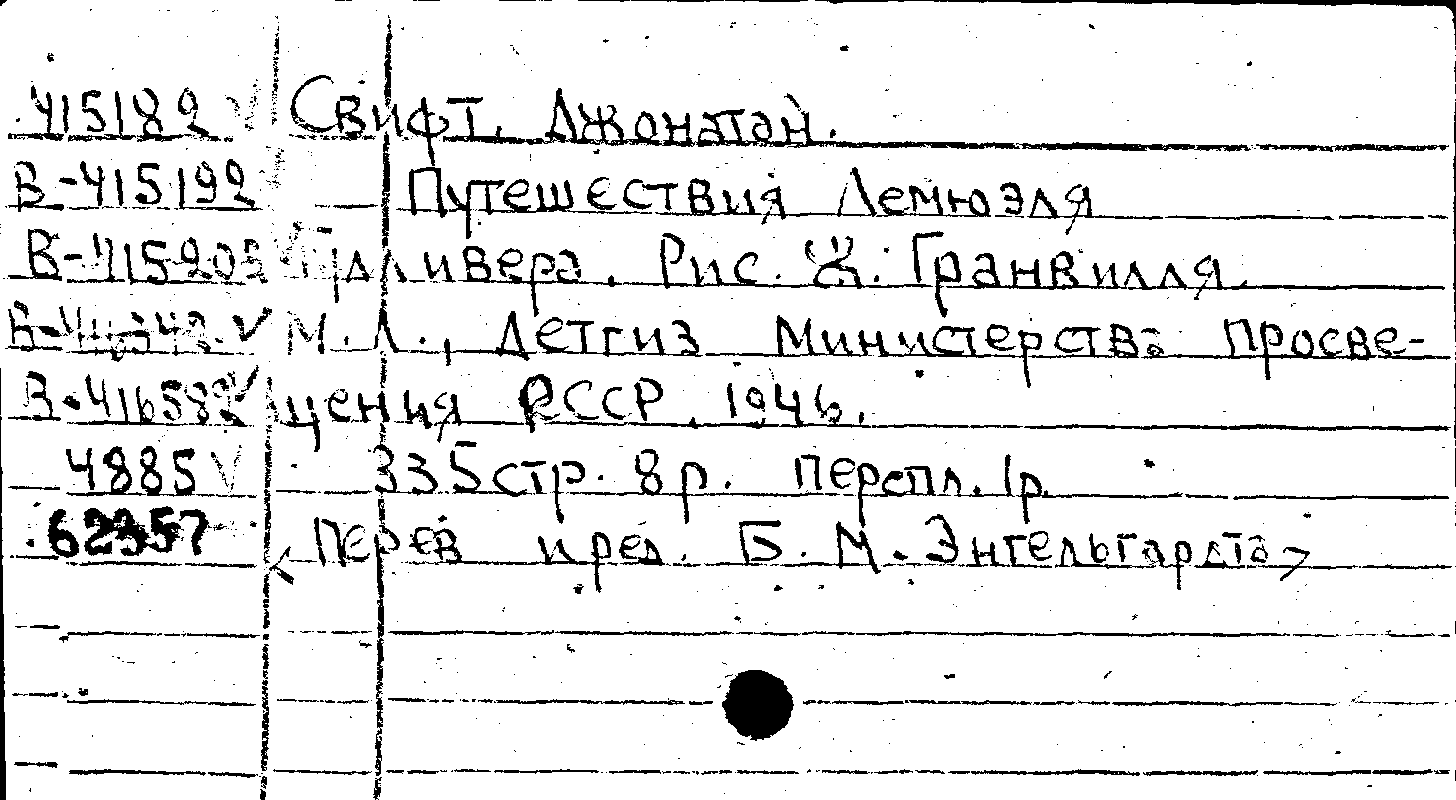 415182 Свифт, Джонатан.
В-415192 Путешествия Лемюэля
В-415203 Гулливера. Рис. Ж. Гранвилля.
М.Л., Детгиз Министерства просве-
В-416582 щения РССР, 1946.
4885 335стр. 8р. перепл. 1р.
62357 <Перев и ред. Б. М. Энгельгардта>